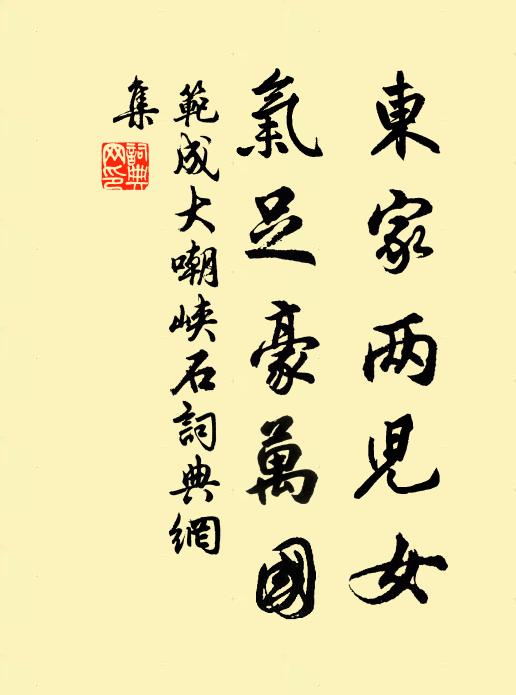 東家兩児女
氣足豪萬國
範成大嘲峽石詞典網
集
詞典
网印